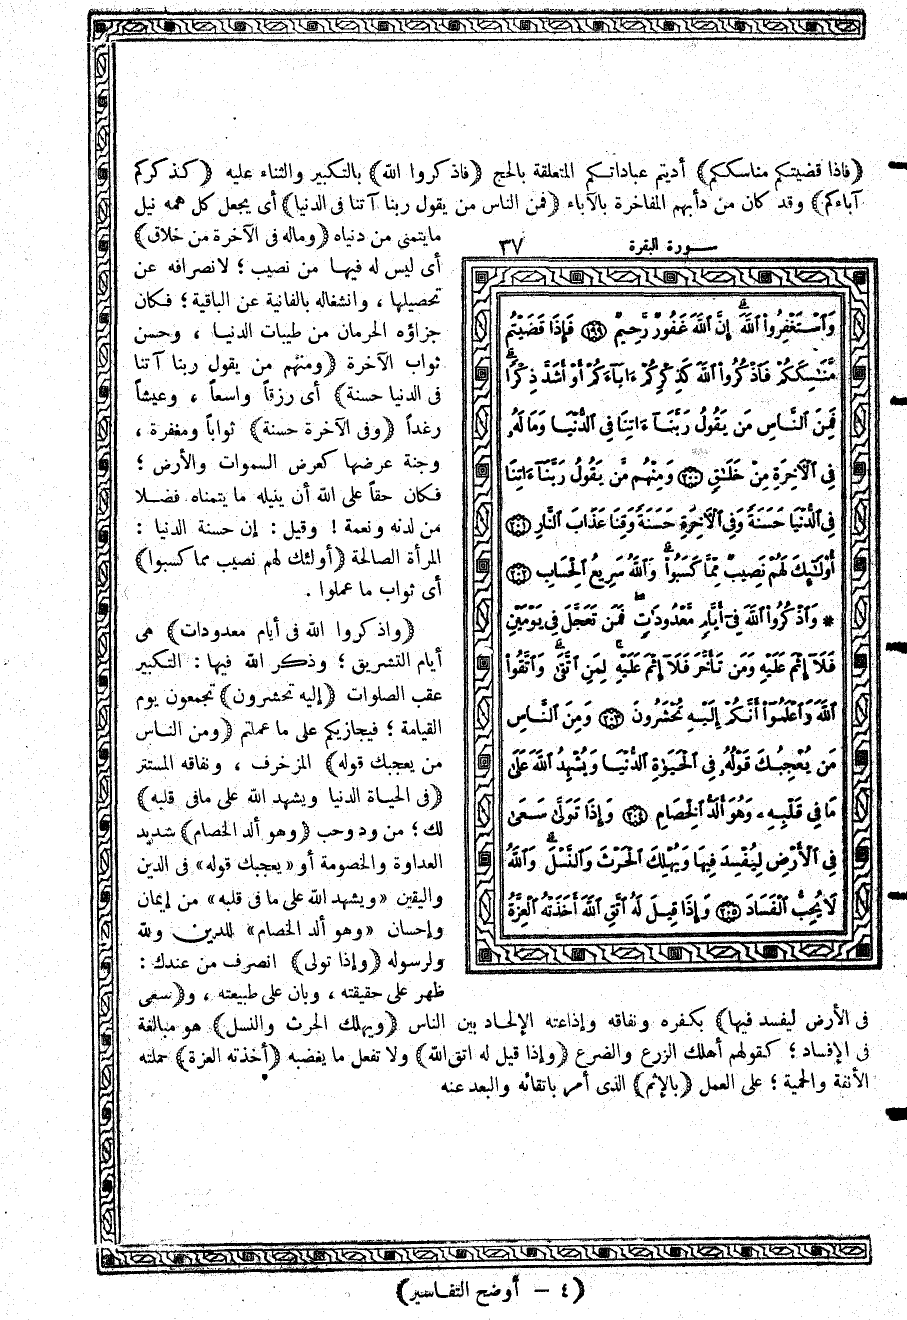 ﴿فاذا قضيتكم مناسككم﴾ أديتم عباداتكم المتعلقة بالحج ﴿فاذكروا الله﴾ بالتكبير والثناء عليه ﴿كذكركم
آباءكم﴾ وقد كان من دأبهم المفاخرة بالآباء ﴿فمن الناس من يقول ربنا آتنا فى الدنيا﴾ أى يجعل كل همه نيل
مايتمنى من دنياه ﴿وماله فى الآخرة من خلاق﴾
أى ليس له فيها من نصيب؛ لانصرافه عن
تحصيلها، وانشغاله بالفانية عن الباقية؛ فكان
جزاؤه الحرمان من طيبات الدنيا، وحسن
ثواب الآخرة ﴿ومنهم من يقول ربنا آتنا
فى الدنيا حسنة﴾ أى رزقاً واسعاً، وعيشاً
رغداً ﴿وفى الآخرة حسنة﴾ ثواباً ومغفرة،
وجنة عرضها كعرض السموات والأرض؛
فكان حقاً على الله أن ينيله ما يتمناه فضلا
من لدنه ونعمة! وقيل: إن حسنة الدنيا:
المرأة الصالحة ﴿أولئك لهم نصيب مما كسبوا﴾
أى ثواب ما عملوا.
﴿واذكروا الله فى أيام معدودات﴾ هى
أيام التشريق؛ وذكر الله فيها: التكبير
عقب الصلوات ﴿إليه تحشرون﴾ تجمعون يوم
القيامة؛ فيجازيكم على ما عملتم ﴿ومن الناس
من يعجبك قوله﴾ المزخرف، ونفاقه المستتر
﴿فى الحياة الدنيا ويشهد الله على مافى قلبه﴾
لك؛ من ود وحب ﴿وهو ألد الخصام﴾ شديد
العداوة والخصومة أو «يعجبك قوله» فى الدين
واليقين «ويشهد الله على ما فى قلبه» من إيمان
وإحسان «وهو ألد الخصام» للدين ولله
ولرسوله ﴿وإذا تولى﴾ انصرف من عندك:
ظهر على حقيقته، وبان على طبيعته، و﴿سعى
فى الأرض ليفسد فيها﴾ بكفره ونفاقه وإذاعته الإلحاد بين الناس ﴿ويهلك الحرث والنسل﴾ هو مبالغة
فى الإفساد؛ كقولهم أهلك الزرع والضرع ﴿وإذا قيل له اتق الله﴾ ولا تفعل ما يغضبه ﴿أخذته العزة﴾ حملته
الأنفة والحمية؛ على العمل ﴿بالإثم﴾ الذى أمر باتقائه والبعد عنه
سورة البقرة ٣٧
وَٱسْتَغْفِرُوا۟ ٱللَّهَ ۚ إِنَّ ٱللَّهَ غَفُورٌ رَّحِيمٌ ﴿١٩٩﴾ فَإِذَا قَضَيْتُم
مَّنَٰسِكَكُمْ فَٱذْكُرُوا۟ ٱللَّهَ كَذِكْرِكُمْ ءَابَآءَكُمْ أَوْ أَشَدَّ ذِكْرًا ۗ
فَمِنَ ٱلنَّاسِ مَن يَقُولُ رَبَّنَآ ءَاتِنَا فِى ٱلدُّنْيَا وَمَا لَهُۥ
فِى ٱلْءَاخِرَةِ مِنْ خَلَٰقٍ ﴿٢٠٠﴾ وَمِنْهُم مَّن يَقُولُ رَبَّنَآ ءَاتِنَا
فِى ٱلدُّنْيَا حَسَنَةً وَفِى ٱلْءَاخِرَةِ حَسَنَةً وَقِنَا عَذَابَ ٱلنَّارِ ﴿٢٠١﴾
أُو۟لَٰٓئِكَ لَهُمْ نَصِيبٌ مِّمَّا كَسَبُوا۟ ۚ وَٱللَّهُ سَرِيعُ ٱلْحِسَابِ ﴿٢٠٢﴾
* وَٱذْكُرُوا۟ ٱللَّهَ فِىٓ أَيَّامٍ مَّعْدُودَٰتٍ ۚ فَمَن تَعَجَّلَ فِى يَوْمَيْنِ
فَلَآ إِثْمَ عَلَيْهِ وَمَن تَأَخَّرَ فَلَآ إِثْمَ عَلَيْهِ ۚ لِمَنِ ٱتَّقَىٰ ۗ وَٱتَّقُوا۟
ٱللَّهَ وَٱعْلَمُوٓا۟ أَنَّكُمْ إِلَيْهِ تُحْشَرُونَ ﴿٢٠٣﴾ وَمِنَ ٱلنَّاسِ
مَن يُعْجِبُكَ قَوْلُهُۥ فِى ٱلْحَيَوٰةِ ٱلدُّنْيَا وَيُشْهِدُ ٱللَّهَ عَلَىٰ
مَا فِى قَلْبِهِۦ وَهُوَ أَلَدُّ ٱلْخِصَامِ ﴿٢٠٤﴾ وَإِذَا تَوَلَّىٰ سَعَىٰ
فِى ٱلْأَرْضِ لِيُفْسِدَ فِيهَا وَيُهْلِكَ ٱلْحَرْثَ وَٱلنَّسْلَ ۗ وَٱللَّهُ
لَا يُحِبُّ ٱلْفَسَادَ ﴿٢٠٥﴾ وَإِذَا قِيلَ لَهُ ٱتَّقِ ٱللَّهَ أَخَذَتْهُ ٱلْعِزَّةُ
(٤ – أوضح التفاسير)